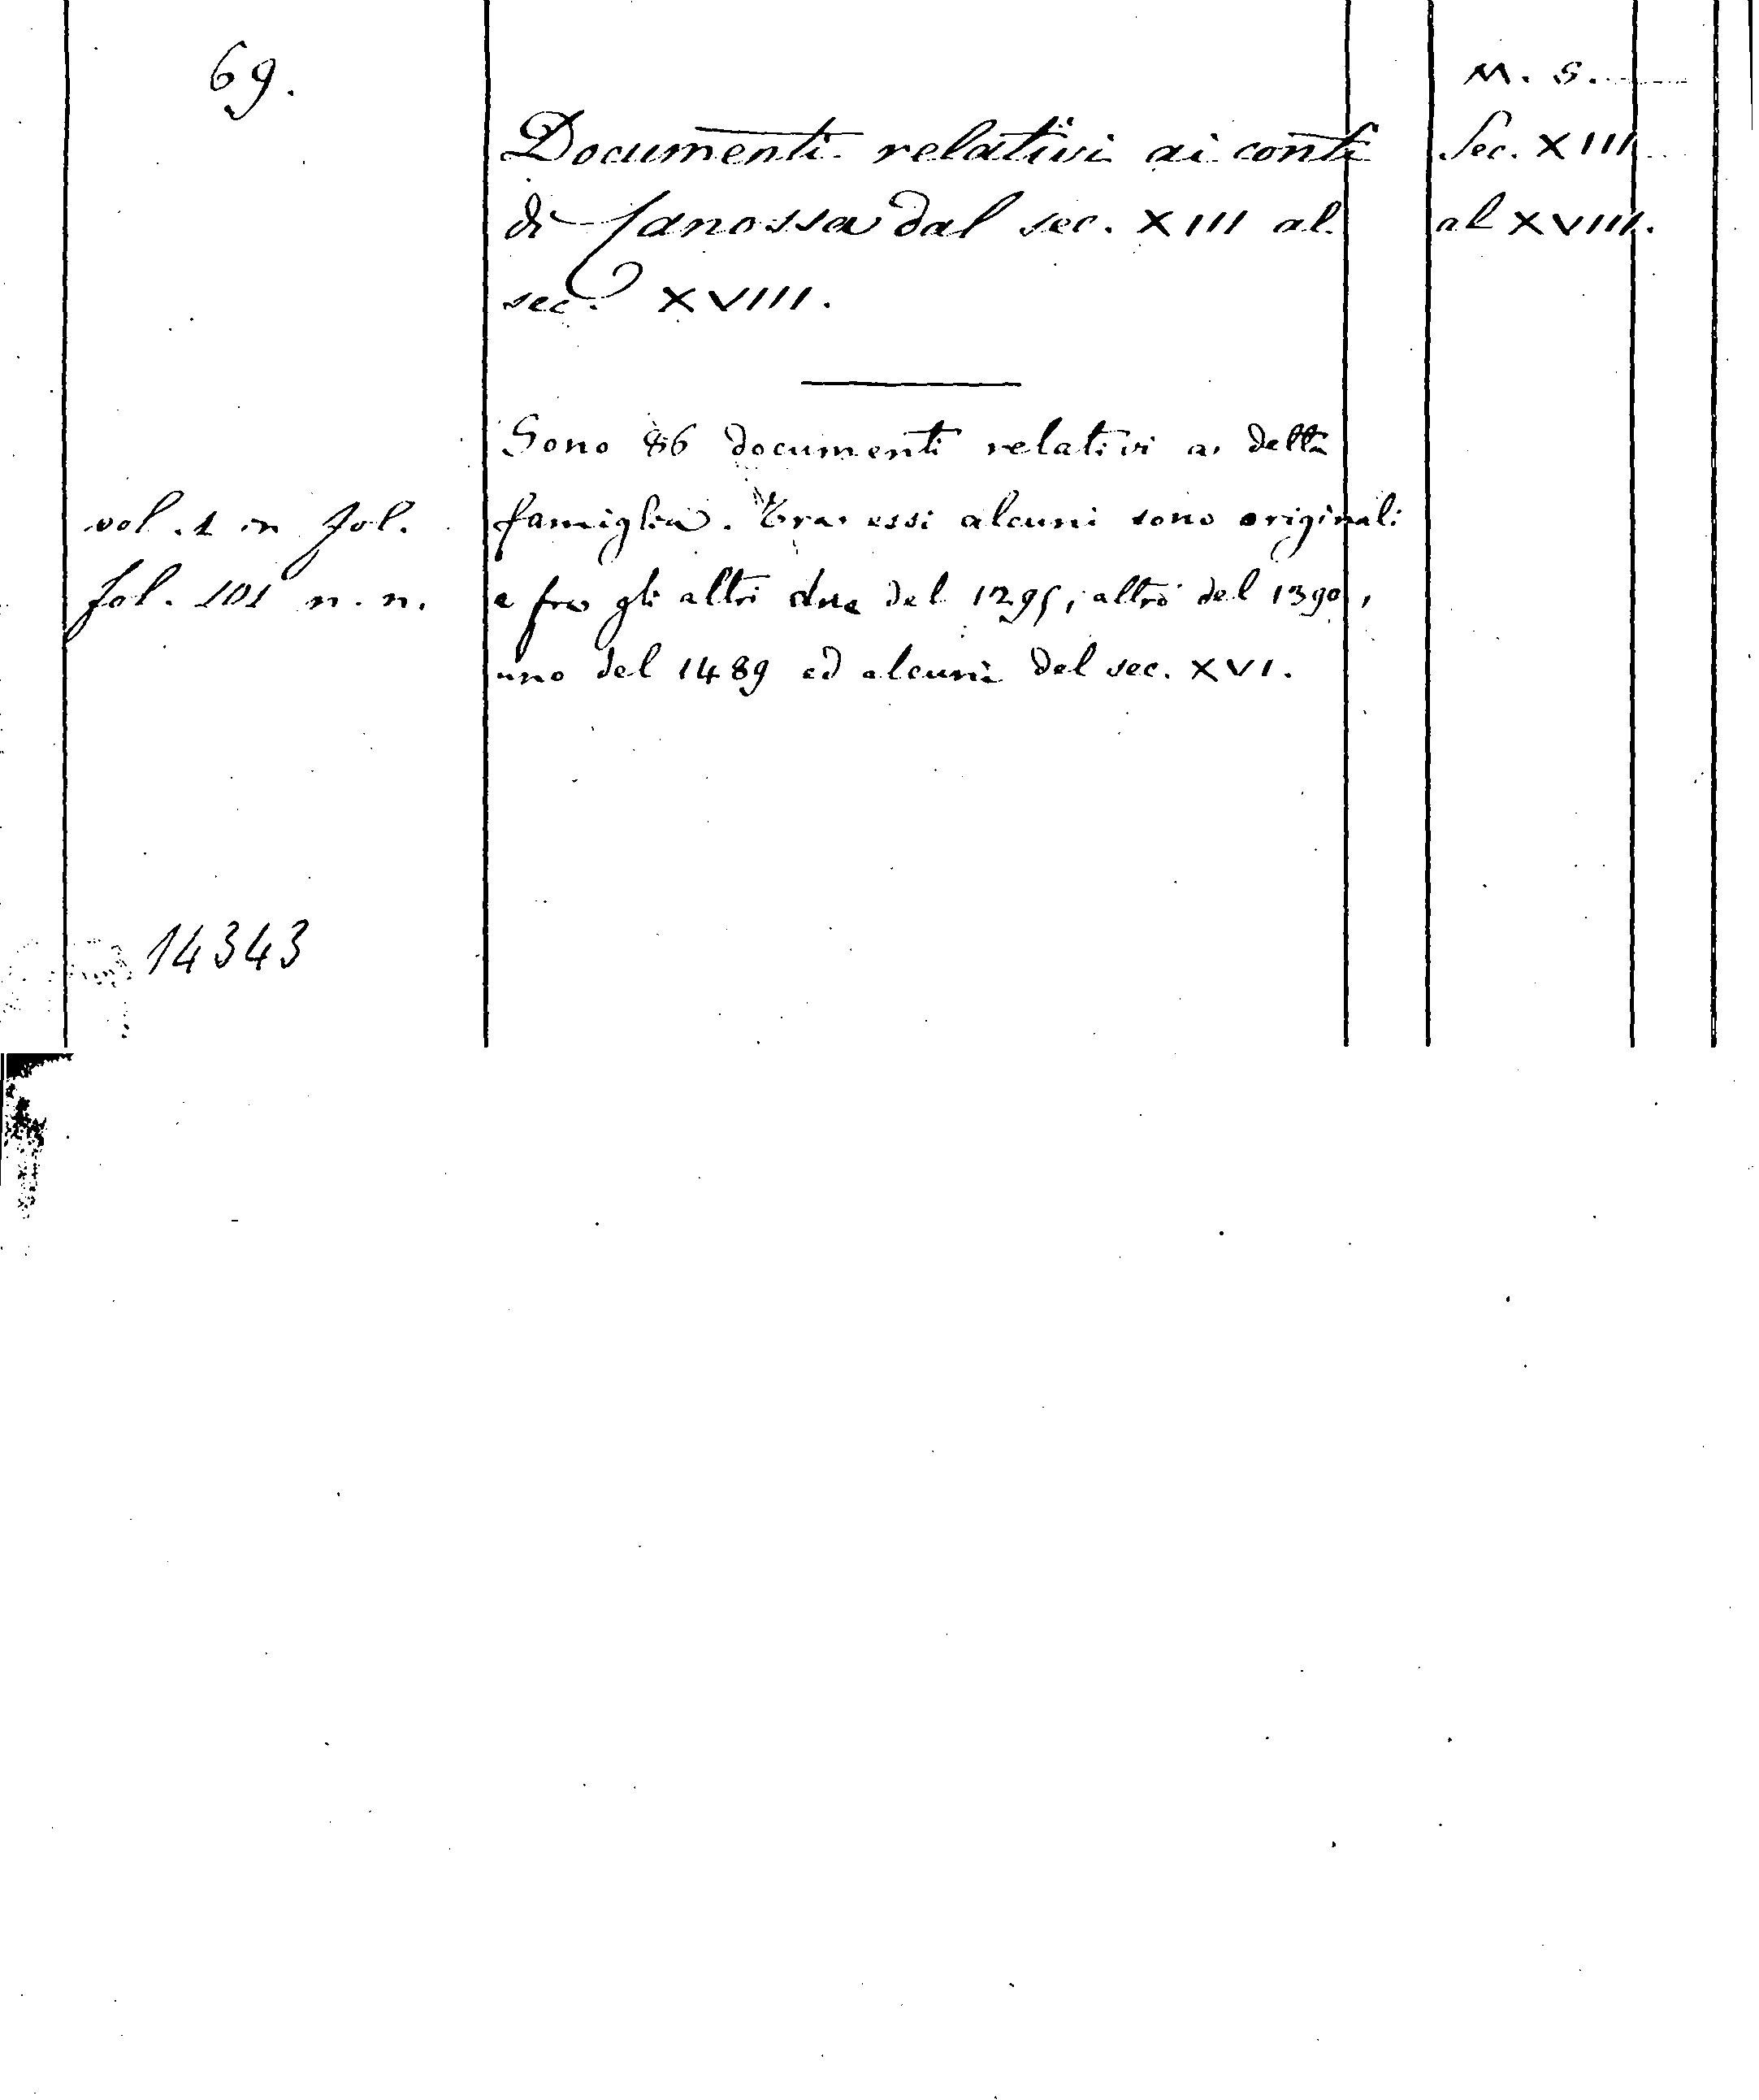 69.
M. S.
Documenti relativi ai conti
Sec. XIII
di Canossa dal sec. XIII al
al XVIII.
sec. XVIII.
Sono 86 documenti relativi a detta
vol. 1 in fol.
famiglia. Tra essi alcuni sono originali
fol. 101 n. n.
e fra gli altri due del 1295, altro del 1390,
uno del 1489 ed alcuni del sec. XVI.
14343